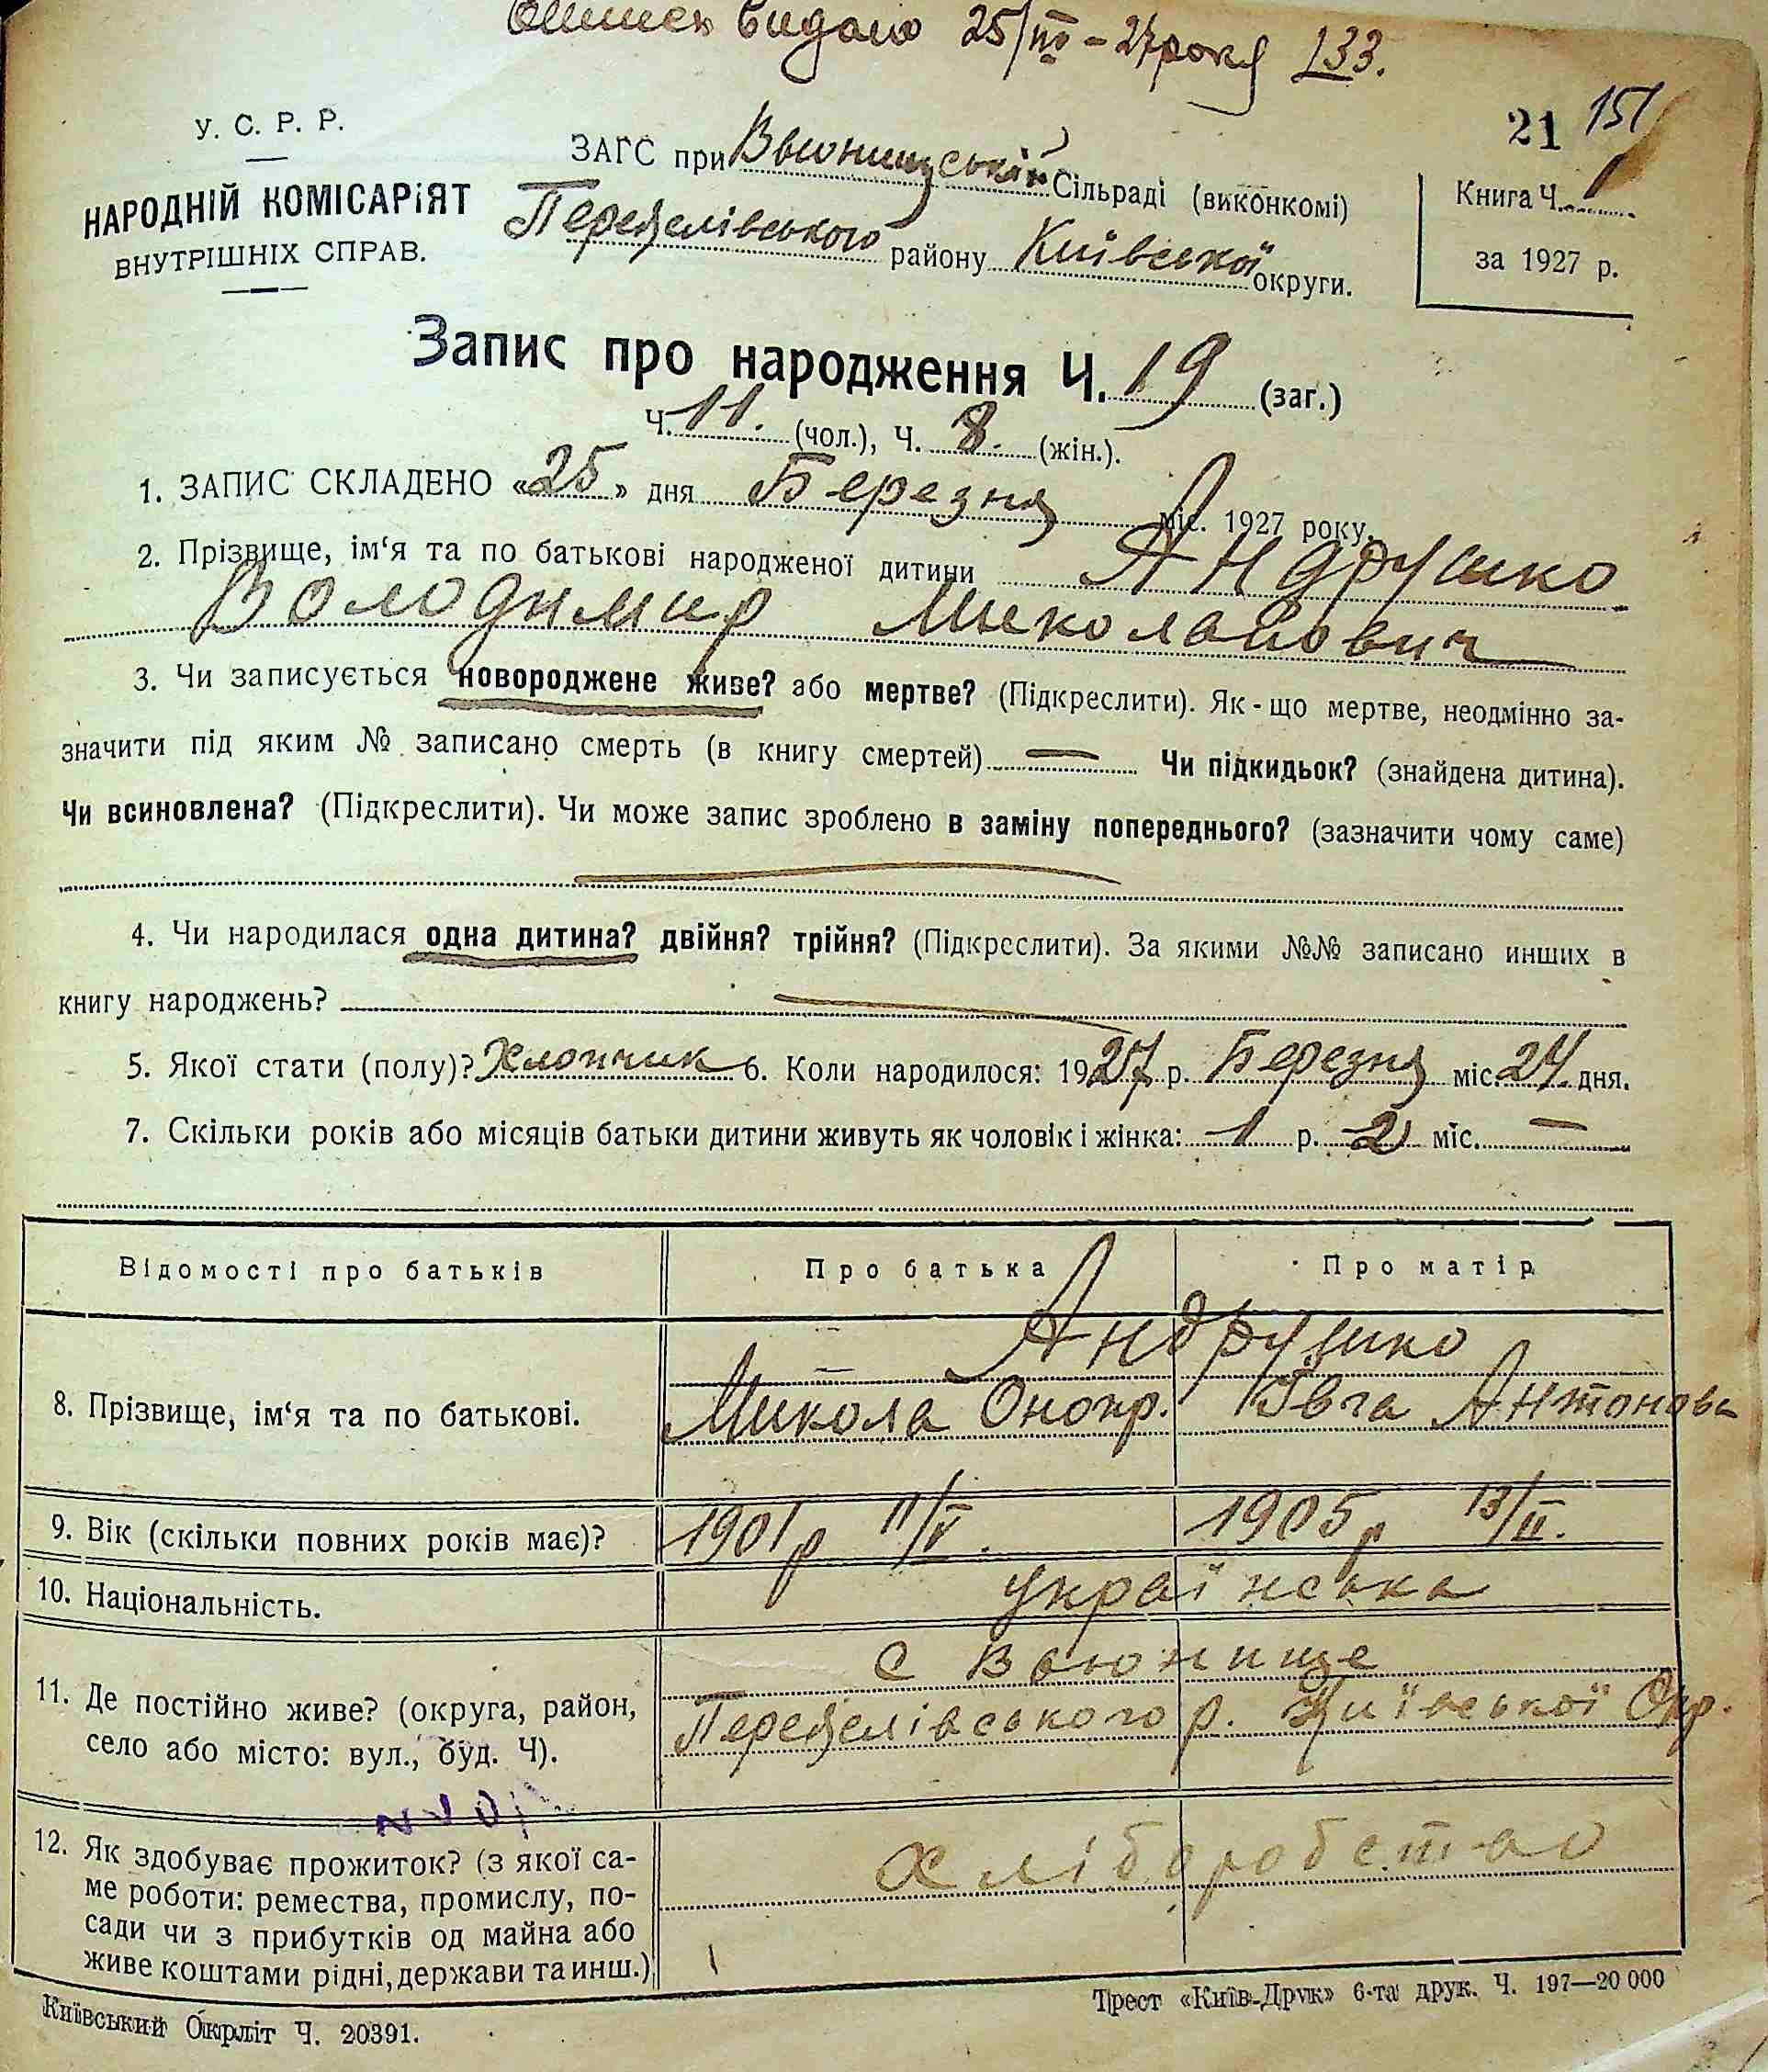 видано 25/III – 27 року 133.
21 151
У. С. Р. Р.
НАРОДНІЙ КОМІСАРІЯТ
ВНУТРІШНІХ СПРАВ.
ЗАГС при Вьюнищській Сільраді (виконкомі)
Переяслівського району Київської округи.
Книга Ч. 1
за 1927 р.
Запис про народження Ч. 19 (заг.)
Ч. 11. (чол.), Ч. 8. (жін.).
1. ЗАПИС СКЛАДЕНО «25» дня Березня міс. 1927 року.
2. Прізвище, ім‘я та по батькові народженої дитини Андрушко
Володимир Миколайович
3. Чи записується новороджене живе? або мертве? (Підкреслити). Як-що мертве, неодмінно за-
значити під яким № записано смерть (в книгу смертей) — Чи підкидьок? (знайдена дитина).
Чи всиновлена? (Підкреслити). Чи може запис зроблено в заміну попереднього? (зазначити чому саме)
4. Чи народилася одна дитина? двійня? трійня? (Підкреслити). За якими №№ записано инших в
книгу народжень?
5. Якої стати (полу)? Хлопчик 6. Коли народилося: 1927 р. Березня міс. 24 дня.
7. Скільки років або місяців батьки дитини живуть як чоловік і жінка: 1 р. 2 міс. —
Відомості про батьків Про батька Про матір
Андрушко
8. Прізвище, ім‘я та по батькові. Микола Онопр. Ївга Антонова
9. Вік (скільки повних років має)? 1901 р 11/V. 1905 р 13/II.
10. Національність. українська
с Вьюнище
11. Де постійно живе? (округа, район, Переяслівського р. Київської Окр.
село або місто: вул., буд. Ч).
12. Як здобуває прожиток? (з якої са- хліборобство
ме роботи: ремества, промислу, по-
сади чи з прибутків од майна або
живе коштами рідні, держави та инш.)
Київський Окрліт Ч. 20391.
Трест «Київ-Друк» 6-та друк. Ч. 197—20 000